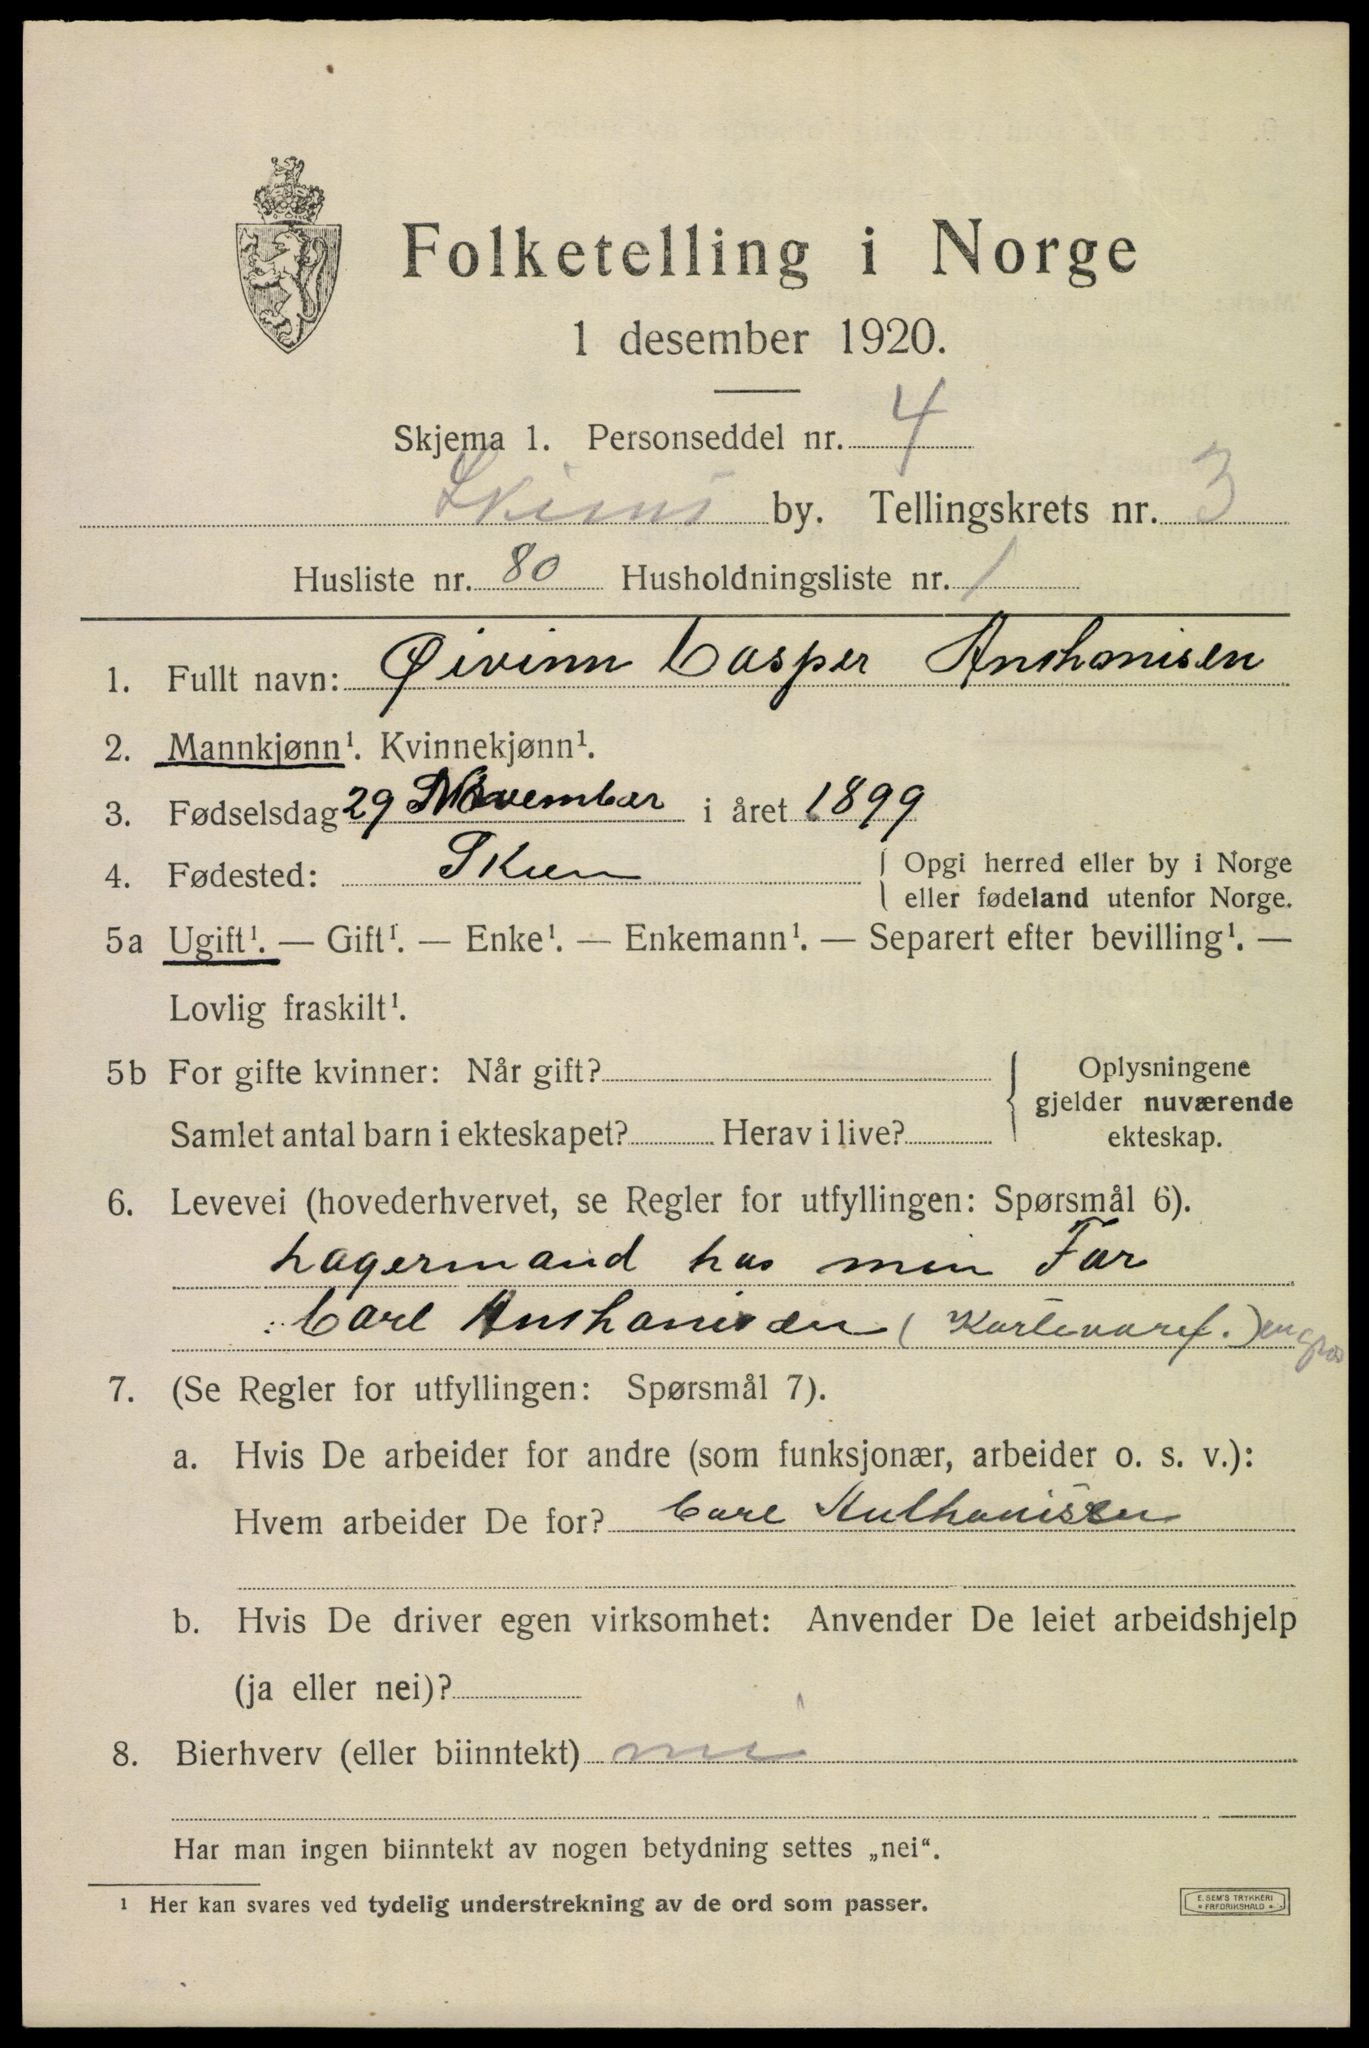 Folketelling i Norge
1 desember 1920.
Skjema 1. Personseddel nr. 4
Skiens by. Tellingskrets nr. 3
Husliste nr. 80 Husholdningsliste nr. 1
1. Fullt navn: Øivinn Casper Anthonisen
2. Mannkjønn¹. Kvinnekjønn¹.
3. Fødselsdag 29 November i året 1899
4. Fødested: Skien { Opgi herred eller by i Norge
eller fødeland utenfor Norge.
5a Ugift¹. — Gift¹. — Enke¹. — Enkemann¹. — Separert efter bevilling¹. —
Lovlig fraskilt¹.
5b For gifte kvinner: Når gift?
Samlet antal barn i ekteskapet? Herav i live?
Oplysningene
gjelder nuværende
ekteskap.
6. Levevei (hovederhvervet, se Regler for utfyllingen: Spørsmål 6).
Lagermand hos min Far
Carl Anthonisen ( ) en gros
7. (Se Regler for utfyllingen: Spørsmål 7).
a. Hvis De arbeider for andre (som funksjonær, arbeider o. s. v.):
Hvem arbeider De for? Carl Anthonissen
b. Hvis De driver egen virksomhet: Anvender De leiet arbeidshjelp
(ja eller nei)?
8. Bierhverv (eller biinntekt) nei
Har man ingen biinntekt av nogen betydning settes „nei“.
¹ Her kan svares ved tydelig understrekning av de ord som passer.
E. SEM'S TRYKKERI
* FREDRIKSHALD *